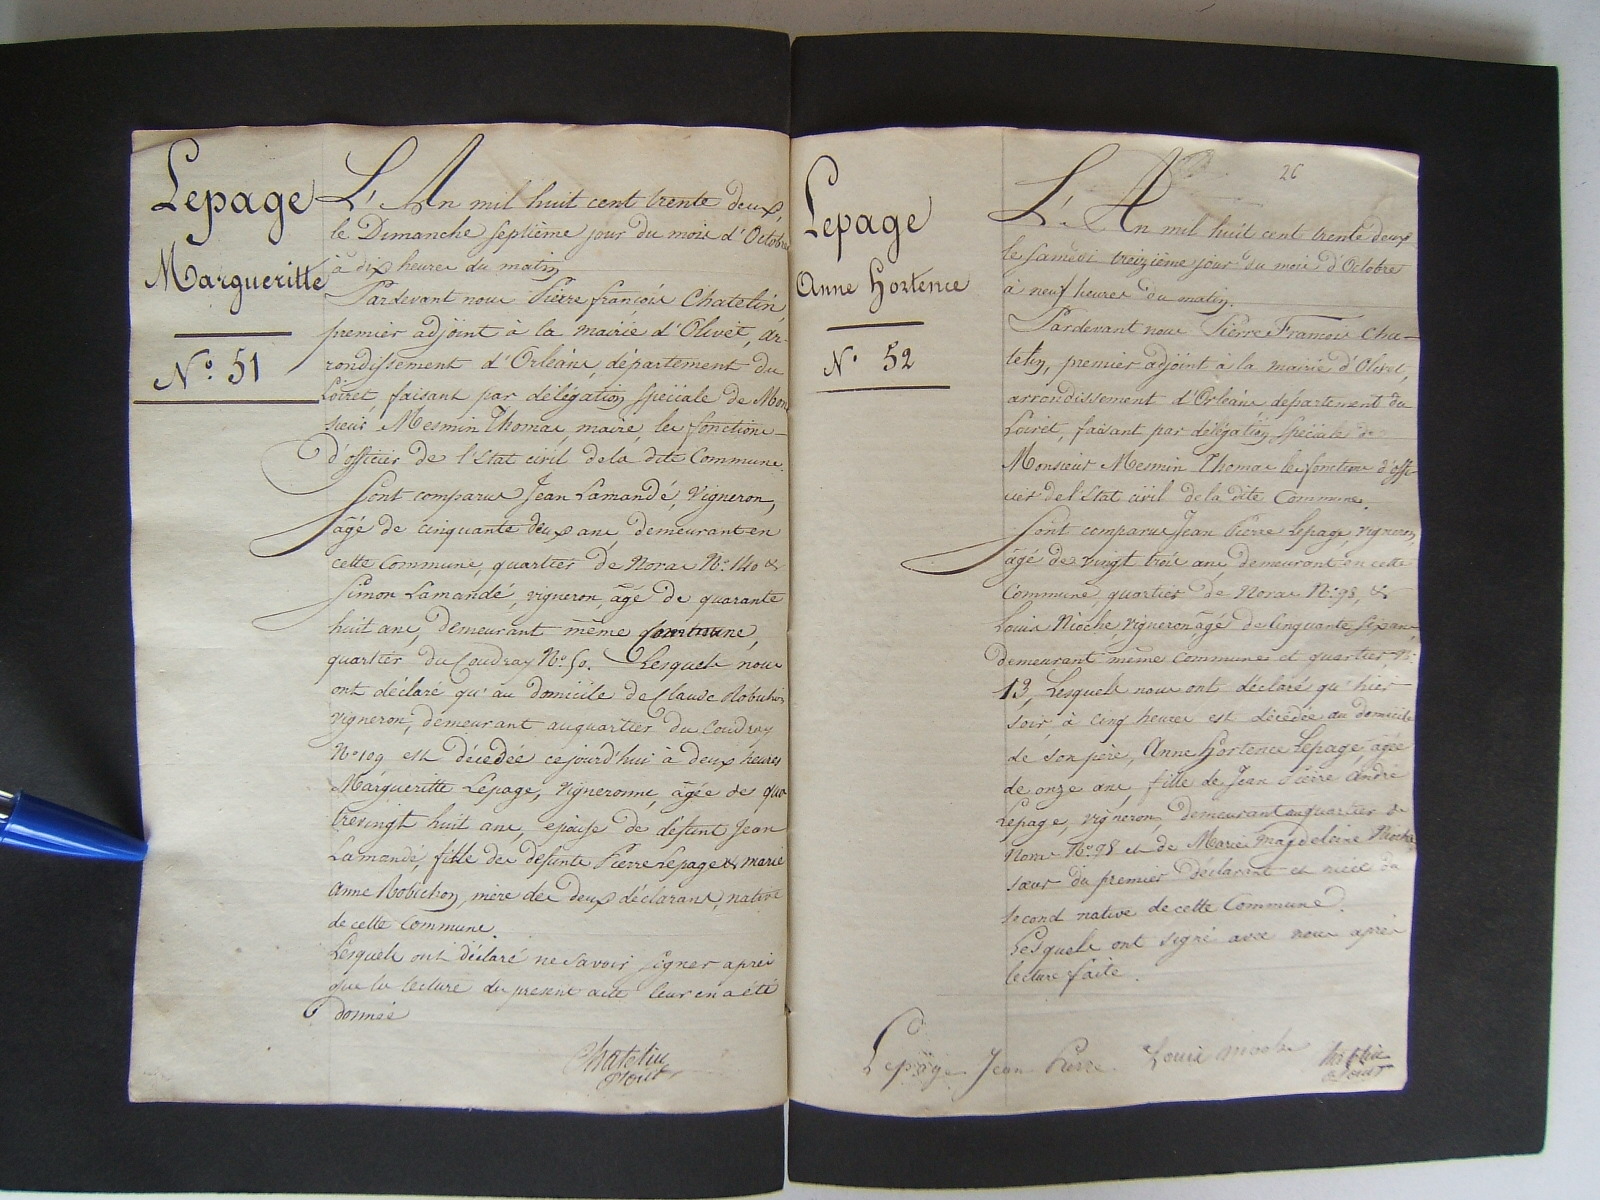 Lepage
Margueritte
N.º 51
L'An mil huit cent trente deux,
le Dimanche septième jour du mois d'Octobre
à dix heures du matin
Pardevant nous Pierre françois Chatelin,
premier adjoint à la mairie d'Olivet, ar-
rondissement d'Orléans, département du
Loiret, faisant par délégation spéciale de Mon
sieur Mesmin Thomas, maire, les fonctions
d'officier de l'Etat civil de la dite Commune.
Sont comparus Jean Lamandé, Vigneron,
âgé de cinquante deux ans, demeurant en
cette Commune, quartier de Noras Nº 140 &
Simon Lamandé, vigneron, âgé de quarante
huit ans, demeurant même Commune,
quartier du Coudray Nº 50. Lesquels nous
ont déclaré qu'au domicile de Claude Robichon
vigneron, demeurant au quartier du Coudray
Nº 109 est décédée cejourd'hui à deux heures
Margueritte Lepage, Vigneronne, âgée de qua
trevingt huit ans, épouse de défunt Jean
Lamandé, fille des défunts Pierre Lepage & marie
anne Robichon, mère des deux déclarans, native
de cette Commune.
Lesquels ont déclaré ne savoir signer après
que la lecture du present acte leur en a été
donnée
Chatelin
adjoint
26
Lepage
Anne Hortence
Nº 52
L'An mil huit cent trente deux
le samedi treizième jour du mois d'Octobre
à neuf heures du matin.
Pardevant nous Pierre François Cha-
telin, premier adjoint à la mairie d'Olivet,
arrondissement d'Orléans département du
Loiret, faisant par délégation spéciale de
Monsieur Mesmin Thomas les fonctions d'offi
cier de l'Etat civil de la dite Commune.
Sont comparus Jean Pierre Lepage, vigneron,
âgé de vingt trois ans, demeurant en cette
Commune, quartier de Noras Nº 98, &
Louis Nioche, vigneron âgé de cinquante six ans,
demeurant même Commune et quartier Nº
13, Lesquels nous ont déclaré qu'hier
soir, à cinq heures est décédée au domicile
de son père, Anne Hortence Lepage, âgée
de onze ans, fille de Jean Pierre andré
Lepage, vigneron, demeurant au quartier de
Noras Nº 98 et de Marie magdeleine Nioche
sœur du premier déclarant et nièce du
second native de cette Commune.
Lesquels ont signé avec nous après
lecture faite.
Lepage Jean Pierre Louis nioche Chatelin
adjoint